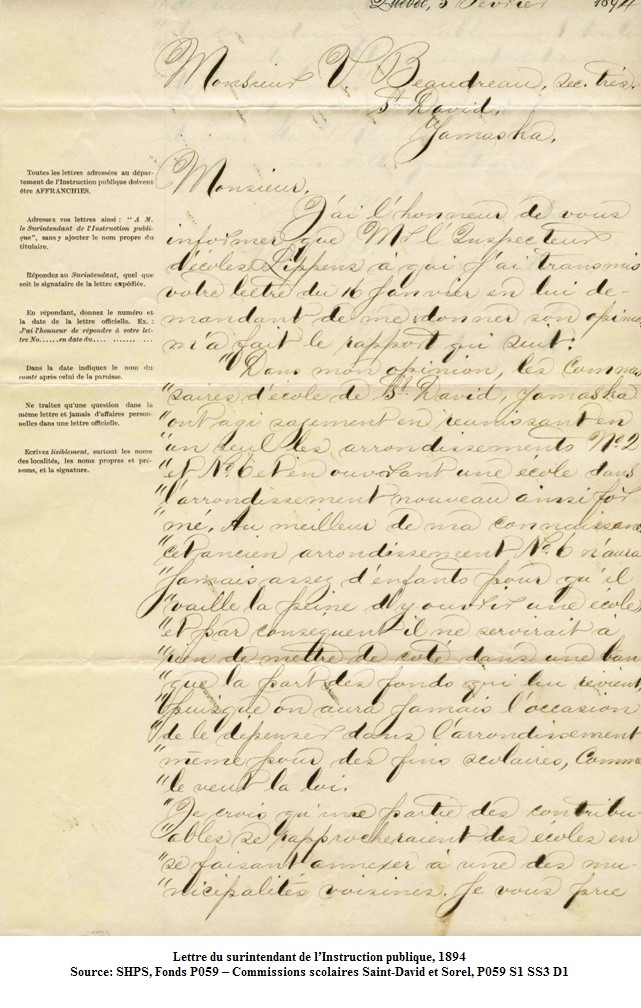 Québec, 5 Février 1894
Monsieur V. Beaudreau, sec. trés.
St David,
Yamaska.
Toutes les lettres adressées au dépar-
tement de l'Instruction publique doivent
être AFFRANCHIES.
Adressez vos lettres ainsi : "A M.
le Surintendant de l'Instruction publi-
que", sans y ajouter le nom propre du
titulaire.
Répondez au Surintendant, quel que
soit le signataire de la lettre expédiée.
En répondant, donnez le numéro et
la date de la lettre officielle. Ex. :
J'ai l'honneur de répondre à votre let-
tre No......en date du.... ........ ...
Dans la date indiquez le nom du
comté après celui de la paroisse.
Ne traitez qu'une question dans la
même lettre et jamais d'affaires person-
nelles dans une lettre officielle.
Ecrivez lisiblement, surtout les noms
des localités, les noms propres et pré-
noms, et la signature.
Monsieur,
J'ai l'honneur de vous
informer que Mr l'Inspecteur
d'écoles Lippens à qui j'ai transmis
votre lettre du 16 Janvier en lui de-
mandant de me donner son opinion
m'a fait le rapport qui suit:
"Dans mon opinion, les commis
"saires d'école de St David, Yamaska
"ont agi sagement en réunissant en
"un seul les arrondissements No 2
"et No 6 et en ouvrant une école dans
"l'arrondissement nouveau ainsi for
"mé. Au meilleur de ma connaissan
"ce l'ancien arrondissement No 6 n'aura
"jamais assez d'enfants pour qu'il
"vaille la peine d'y ouvrir une école
"et par consequent il ne servirait à
"rien de mettre de coté dans une ban
"que la part des fonds qui lui revient
"puisque on aura jamais l'occasion
"de le dépenser dans l'arrondissement
"même pour des fins scolaires, comme
"le veut la loi.
"Je crois qu'une partie des contribu-
"ables se rapprocheraient des ecoles en
"se faisant annexer à une des mu-
"nicipalités voisines. Je vous prie
Lettre du surintendant de l'Instruction publique, 1894
Source: SHPS, Fonds P059 – Commissions scolaires Saint-David et Sorel, P059 S1 SS3 D1